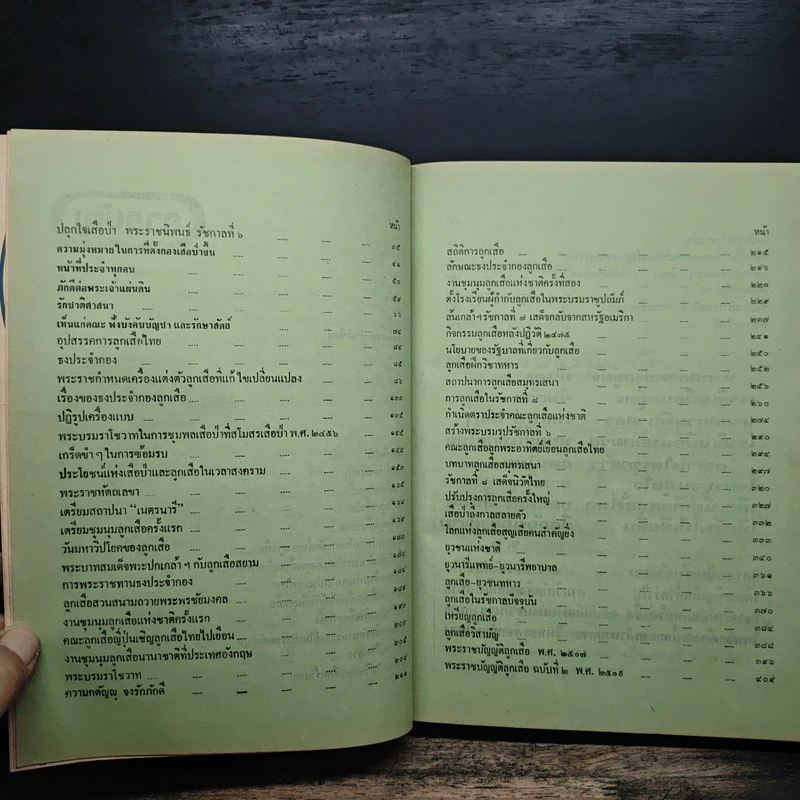 หน้า
ปลุกใจเสือป่า พระราชนิพนธ์ รัชกาลที่ ๖ .... .... ๓๕
ความมุ่งหมายในการที่ตั้งกองเสือป่าขึ้น .... .... ๔๑
หน้าที่ประจำทุกคน .... .... ๕๐
ภักดีต่อพระเจ้าแผ่นดิน .... .... ๕๙
รักชาติศาสนา .... ....
เห็นแก่คณะ ฟังบังคับบัญชา และรักษาสัตย์ .... ๗๔
อุปสรรคการลูกเสือไทย .... .... ๘๔
ธงประจำกอง .... .... ๘๕
พระราชกำหนดเครื่องแต่งตัวลูกเสือที่แก้ไขเปลี่ยนแปลง .... ๘๖
เรื่องของธงประจำกองลูกเสือ .... .... ๑๓๓
ปฏิรูปเครื่องแบบ .... .... ๑๓๕
พระบรมราโชวาทในการชุมพลเสือป่าที่สโมสรเสือป่า พ.ศ. ๒๔๕๖ .... ๑๔๕
เกร็ดขำ ๆ ในการซ้อมรบ .... .... ๑๔๔
ประโยชน์แห่งเสือป่าและลูกเสือในเวลาสงคราม .... ๑๕๓
พระราชหัตถเลขา .... .... ๑๖๕
เตรียมสถาปนา "เนตรนารี" .... .... ๑๖๘
เตรียมชุมนุมลูกเสือครั้งแรก .... .... ๑๖๙
วันมหาวิปโยคของลูกเสือ .... ....
พระบาทสมเด็จพระปกเกล้า ฯ กับลูกเสือสยาม .... ....
การพระราชทานธงประจำกอง .... ....
ลูกเสือสวนสนามถวายพระพรชัยมงคล .... ....
งานชุมนุมลูกเสือแห่งชาติครั้งแรก .... ....
คณะลูกเสือญี่ปุ่นเชิญลูกเสือไทยไปเยือน .... ....
งานชุมนุมลูกเสือนานาชาติที่ประเทศอังกฤษ .... ๒๐๕
พระบรมราโชวาท .... .... ๒๐๘
ความกตัญญู จงรักภักดี .... .... ๒๑๑
หน้า
สถิติการลูกเสือ .... .... ๒๑๕
ลักษณะธงประจำกองลูกเสือ .... .... ๒๑๖
งานชุมนุมลูกเสือแห่งชาติครั้งที่สอง .... .... ๒๒๐
ตั้งโรงเรียนผู้กำกับลูกเสือในพระบรมราชูปถัมภ์ .... ๒๒๙
ล้นเกล้าฯ รัชกาลที่ ๗ เสด็จกลับจากสหรัฐอเมริกา .... ๒๓๗
กิจกรรมลูกเสือหลังปฏิวัติ ๒๔๗๕ .... .... ๒๔๑
นโยบายของรัฐบาลที่เกี่ยวกับลูกเสือ .... .... ๒๕๐
ลูกเสือฝึกวิชาทหาร .... .... ๒๕๒
สถาปนาการลูกเสือสมุทรเสนา .... .... ๒๕๖
การลูกเสือในรัชกาลที่ ๘ .... .... ๒๖๐
กำเนิดตราประจำคณะลูกเสือแห่งชาติ .... .... ๒๗๔
สร้างพระบรมรูปรัชกาลที่ ๖ .... .... ๒๙๐
คณะลูกเสือลูกพระอาทิตย์เยือนลูกเสือไทย .... .... ๒๙๔
บทบาทลูกเสือสมุทรเสนา .... .... ๒๙๗
รัชกาลที่ ๘ เสด็จนิวัตไทย .... .... ๓๒๐
ปรับปรุงการลูกเสือครั้งใหญ่ .... .... ๓๒๗
เสือป่าถึงกาลสลายตัว .... .... ๓๓๒
โลกแห่งลูกเสือสูญเสียคนสำคัญยิ่ง .... .... ๓๓๓
ยุวชนแห่งชาติ .... .... ๓๔๐
ยุวนารีแพทย์-ยุวนารีพยาบาล .... .... ๓๖๑
ลูกเสือ-ยุวชนทหาร .... .... ๓๖๖
ลูกเสือในรัชกาลปัจจุบัน .... .... ๓๗๐
เหรียญลูกเสือ .... .... ๓๘๔
ลูกเสือวิสามัญ .... .... ๓๘๘
พระราชบัญญัติลูกเสือ พ.ศ. ๒๕๐๗ .... .... ๓๙๖
พระราชบัญญัติลูกเสือ ฉบับที่ ๒ พ.ศ. .... .... ๔๐๙